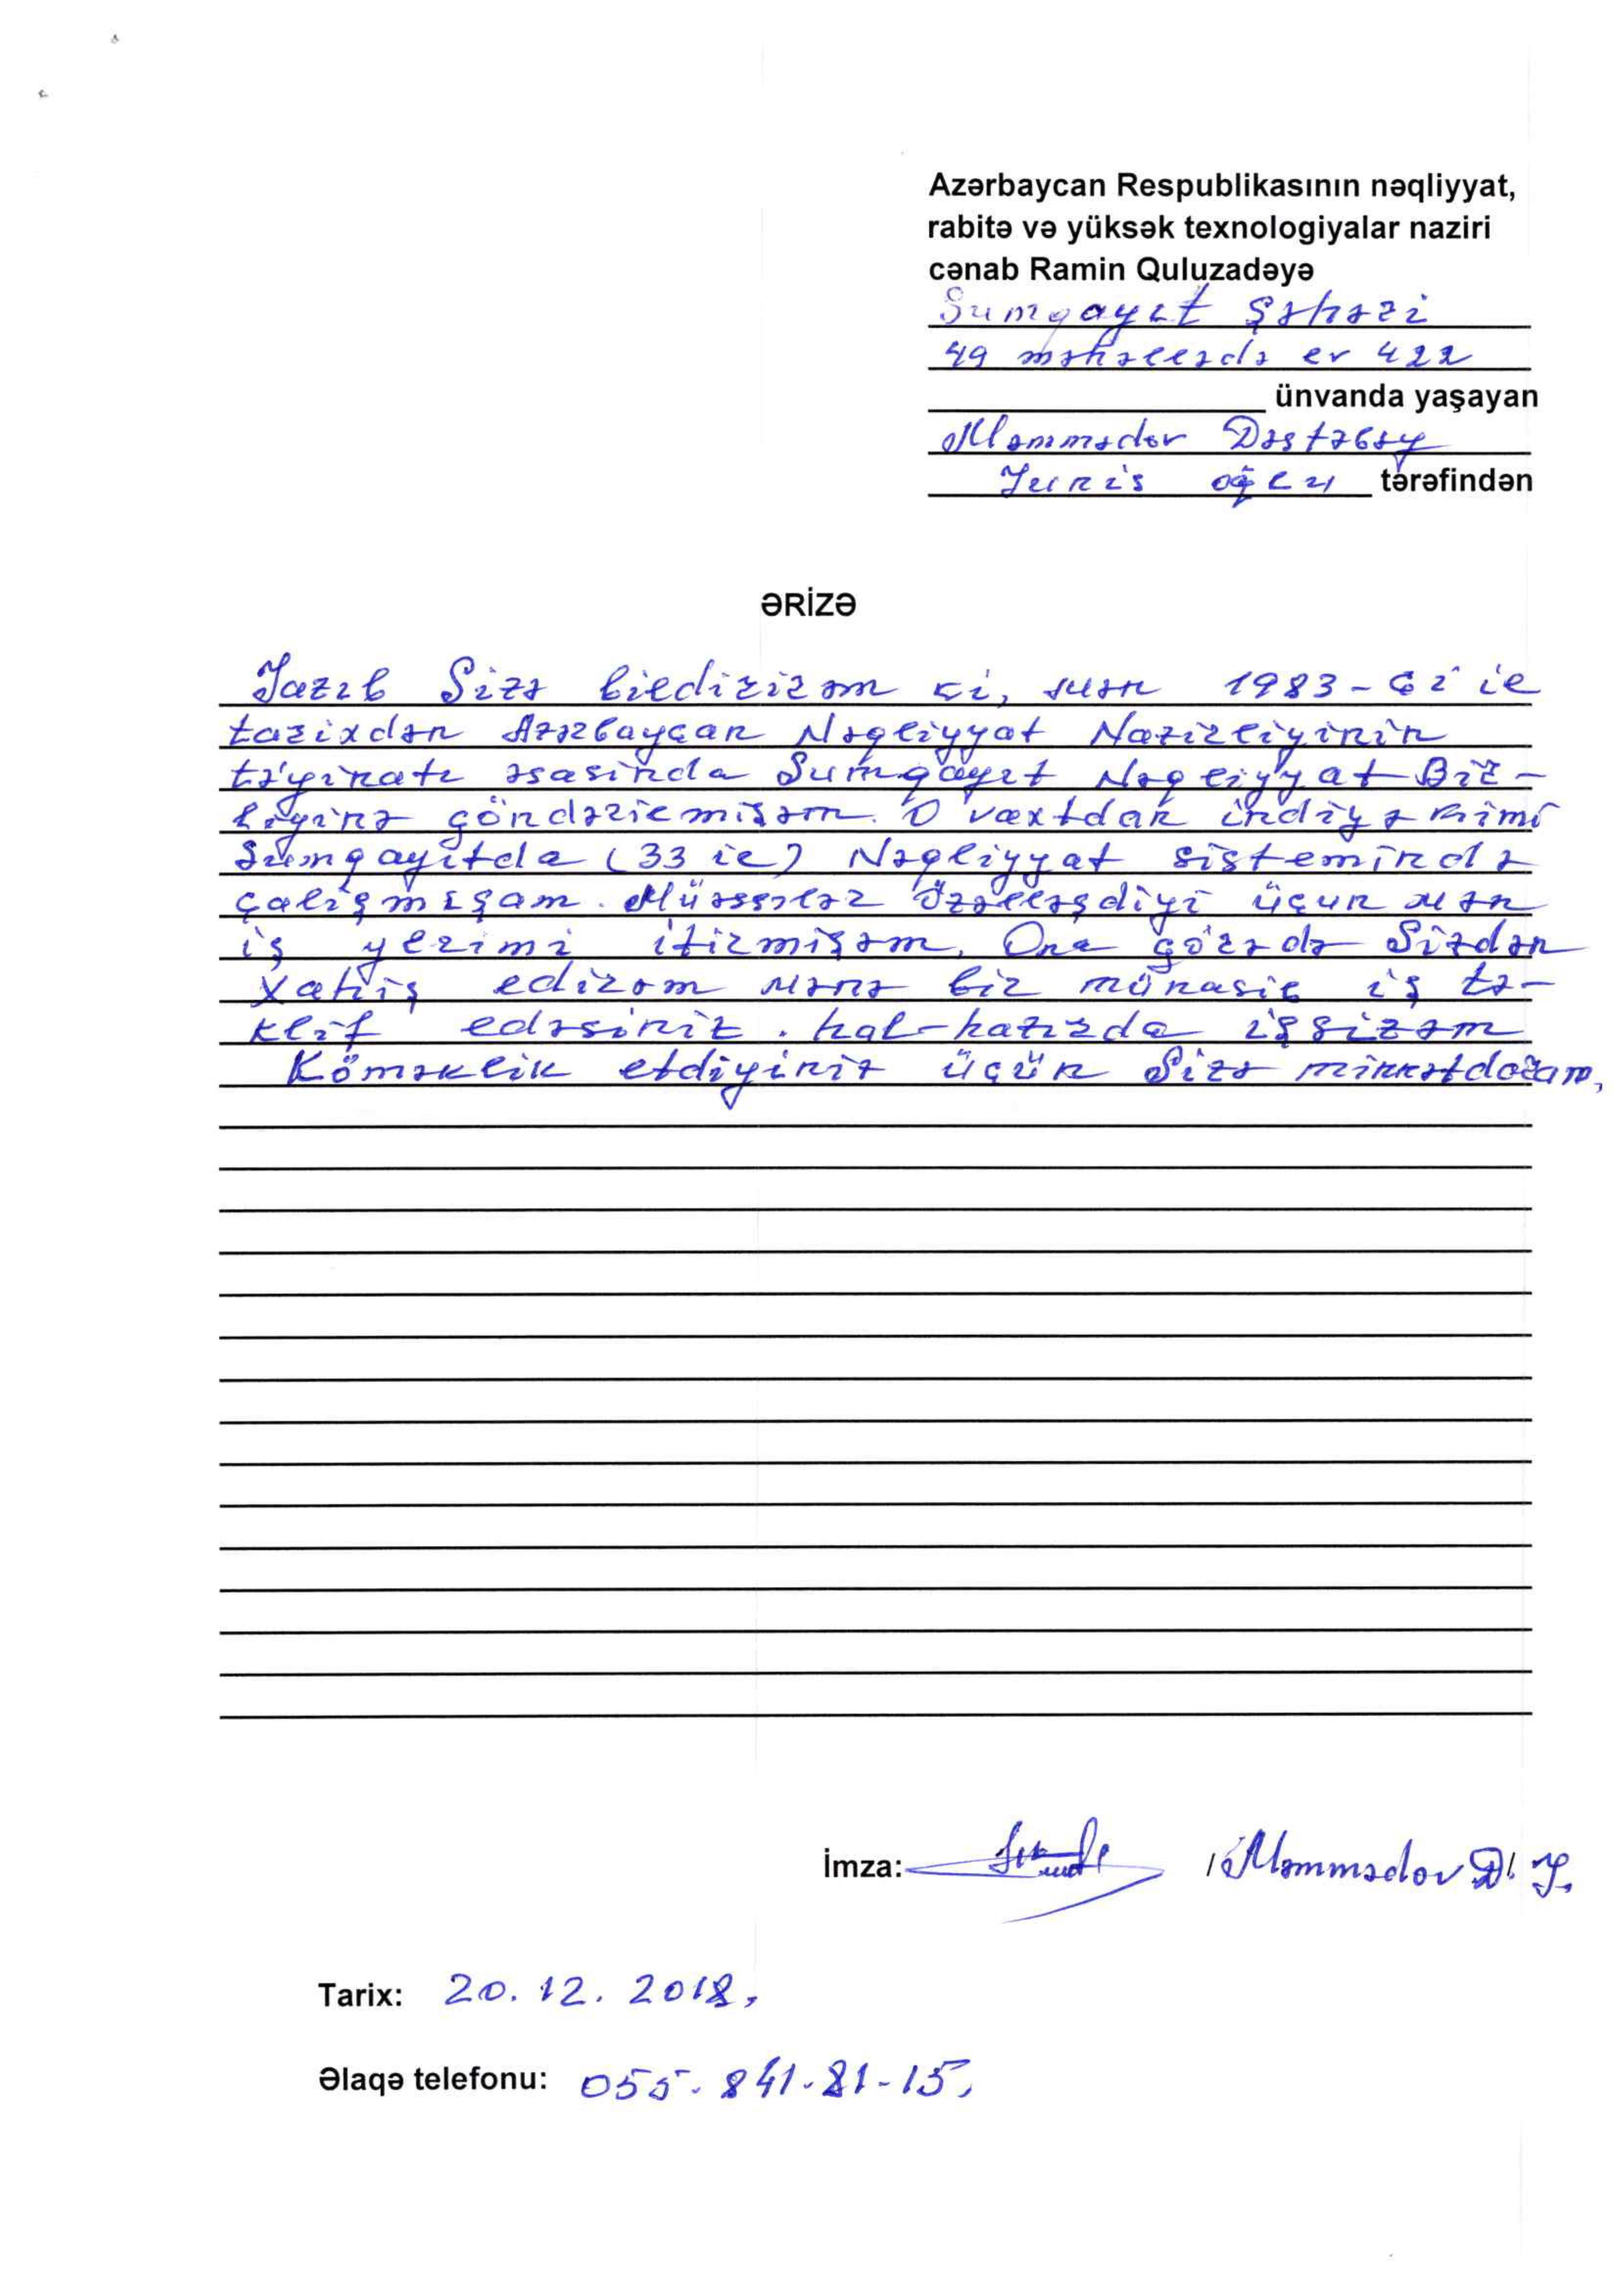 Azərbaycan Respublikasının nəqliyyat,
rabitə və yüksək texnologiyalar naziri
cənab Ramin Quluzadəyə
Sumqayıt Şəhəri
49 məhəllədə ev 422
ünvanda yaşayan
Məmmədov Dəstəbəy
Yunis oğlu tərəfindən
ƏRİZƏ
Yazıb Sizə bildirirəm ki, mən 1983-cü il
tarixdən Azərbaycan Nəqliyyat Nazirliyinin
tə'yinatı əsasında Sumqayıt Nəqliyyat Bir-
liyinə göndərilmişəm. O vaxtdan indiyə kimi
Sumqayıtda (33 il) Nəqliyyat sistemində
çalışmışam. Müəssələr Özəlləşdiyi üçün mən
iş yerimi itirmişəm. Ona görə də Sizdən
xahiş edirəm mənə bir münasib iş tə-
klif edəsiniz. hal-hazırda işsizəm
Köməklik etdiyiniz üçün Sizə minnətdoram,
İmza: /Məmmədov D. Y.
Tarix: 20. 12. 2018,
Əlaqə telefonu: 055-841-81-15,